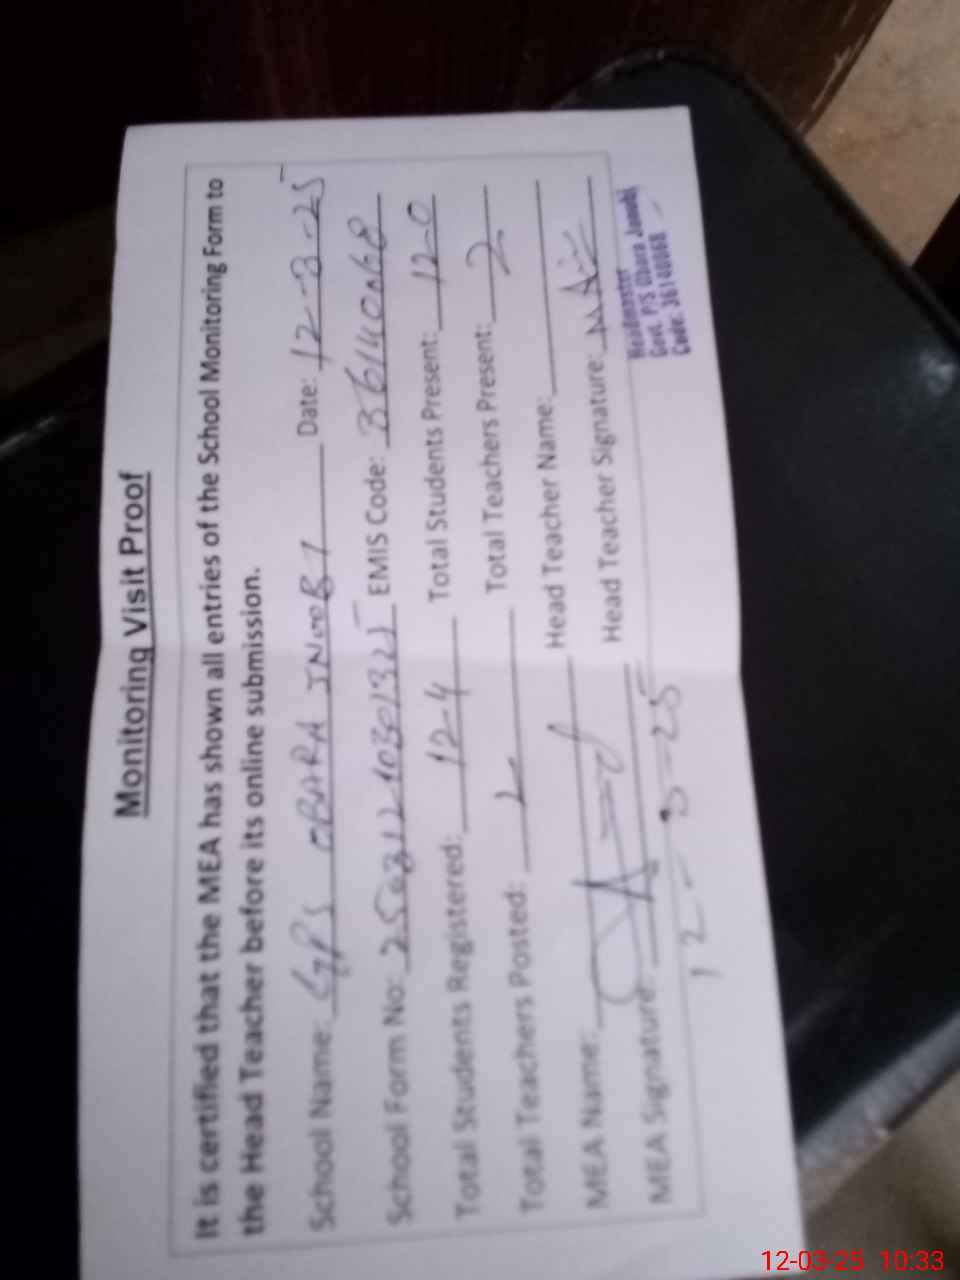 Monitoring Visit Proof
It is certified that the MEA has shown all entries of the School Monitoring Form to
the Head Teacher before its online submission.
School Name: GPS OBARA JNOOBI Date: 12-3-25
School Form No: EMIS Code: 36140068
Total Students Registered: 124 Total Students Present: 120
Total Teachers Posted: 2 Total Teachers Present: 2
MEA Name: Head Teacher Name:
MEA Signature: Head Teacher Signature:
12-3-25
Headmaster
Govt. P/S Obara Janobi
Code: 36140068
12-03-25 10:33